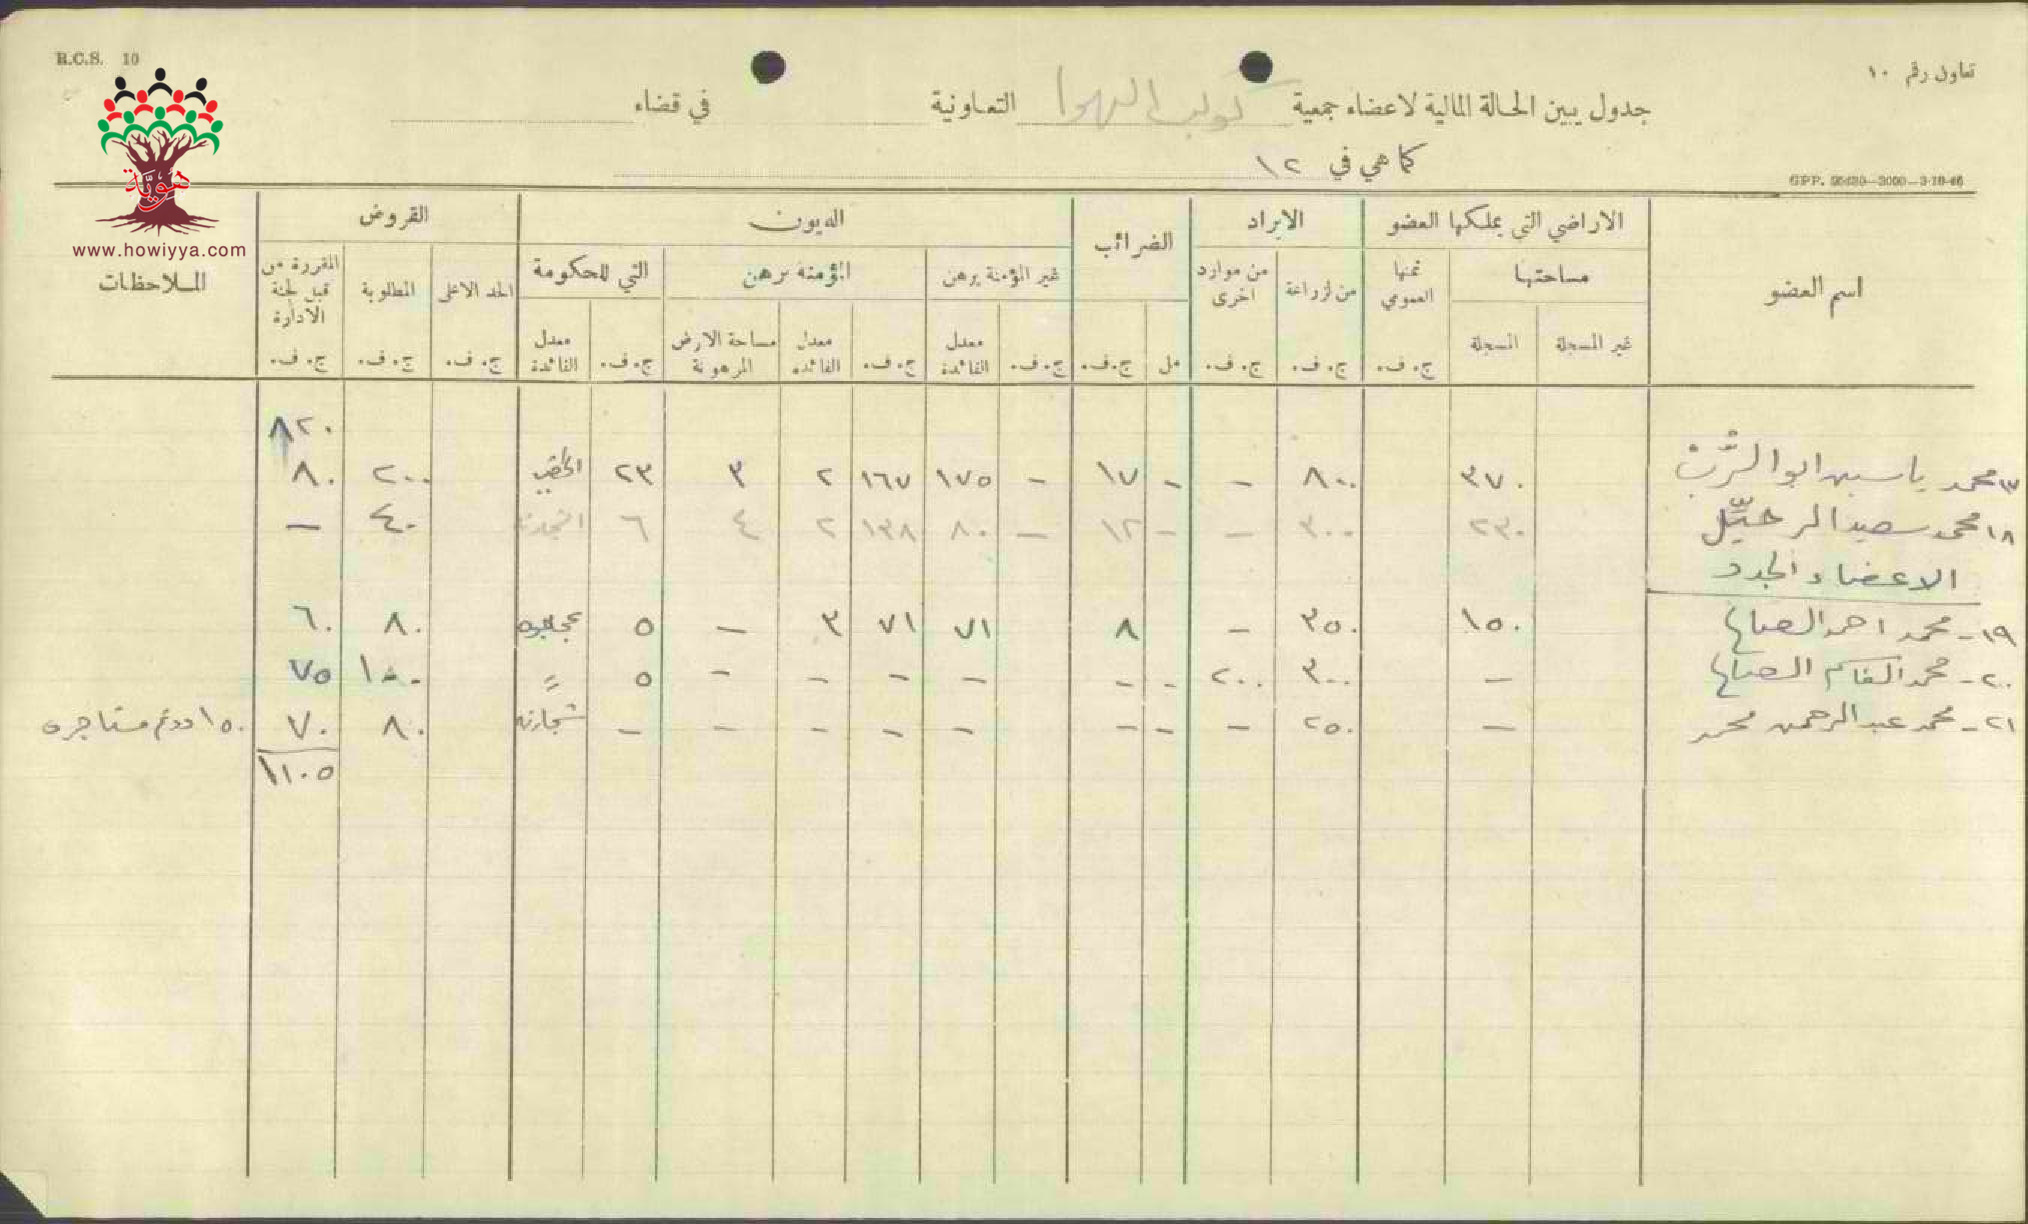 R.C.S. 10
تعاون رقم ١٠
جدول يبين الحالة المالية لاعضاء جمعية كوكب الهوا التعاونية في قضاء
كما هي في ١٢
GPP. 3000-3-10-46
هويّة
www.howiyya.com
اسم العضو الاراضي التي يملكها العضو الايراد الضرائب الديون القروض الملاحظات
مساحتها ثمنها العمومي من لزراعة من موارد اخرى غير المؤمنة برهن المؤمنة برهن التي للحكومة الحد الاعلى المطلوبة المقررة من قبل لجنة الادارة
غير المسجلة المسجلة ج. ف. ج. ف. ج. ف. مل ج. ف. ج. ف. معدل الفائدة ج. ف. معدل الفائدة مساحة الارض المرهونة ج. ف. معدل الفائدة ج. ف. ج. ف. ج. ف.
٨٢٠
٣ محمد ياسين ابو ٣٧٠ ٨٠٠ - - ١٧ - ١٧٥ ١٦٧ ٢ ٣ ٢٣ ٢٠٠ ٨٠
١٨ محمد سعيد الرحيّل ٢٣٠ ٣٠٠ - - ١٢ - ٨٠ ١٣٨ ٢ ٤ ٦ ٤٠ -
الاعضاء الجدد
١٩- محمد احمد ١٥٠ ٣٥٠ - ٨ ٧١ ٧١ ٣ - ٥ ٨٠ ٦٠
٢٠- محمد القاسم - ٣٠٠ ٢٠٠ - - - - - - ٥ = ١٠٠ ٧٥
٢١- محمد عبد الرحمن محمد - ٢٥٠ - - - - - - - - ٨٠ ٧٠ ١٥٠ دونم مستاجره
١١٠٥